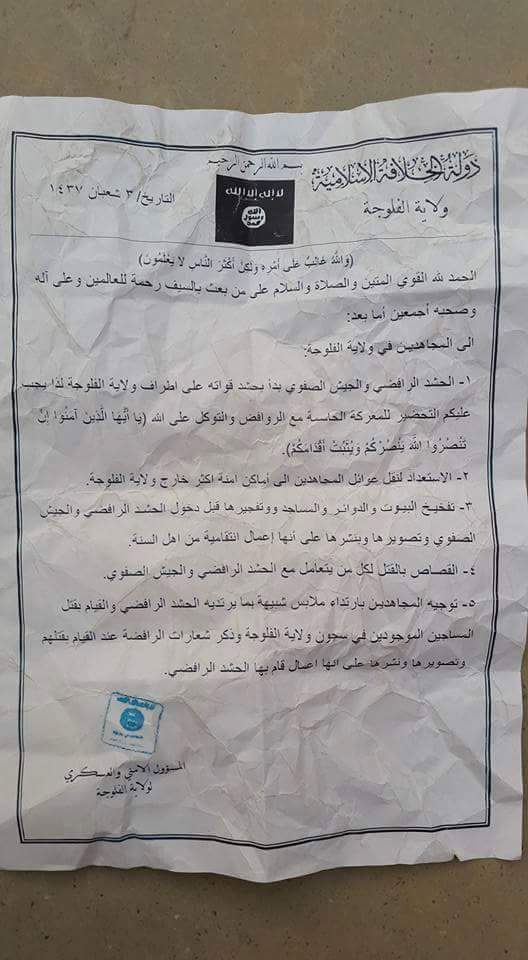 بسم الله الرحمن الرحيم
دولة الخلافة الاسلامية
ولاية الفلوجة
التاريخ/ ٣ شعبان ١٤٣٧
لا إله إلا الله
الله
رسول
محمد
(وَاللَّهُ غَالِبٌ عَلَى أَمْرِهِ وَلَكِنَّ أَكْثَرَ النَّاسِ لا يَعْلَمُونَ)
الحمد لله القوي المتين والصلاة والسلام على من بعث بالسيف رحمة للعالمين وعلى آله
وصحبه أجمعين أما بعد:
الى المجاهدين في ولاية الفلوجة:
١- الحشد الرافضي والجيش الصفوي بدأ بحشد قواته على اطراف ولاية الفلوجة لذا يجب
عليكم التحضير للمعركة الحاسمة مع الروافض والتوكل على الله (يَا أَيُّهَا الَّذِينَ آمَنُوا إِنْ
تَنْصُرُوا اللَّهَ يَنْصُرْكُمْ وَيُثَبِّتْ أَقْدَامَكُمْ).
٢- الاستعداد لنقل عوائل المجاهدين الى أماكن امنة اكثر خارج ولاية الفلوجة.
٣- تفخيخ البيوت والدوائر والمساجد ووتفجيرها قبل دخول الحشد الرافضي والجيش
الصفوي وتصويرها وبنشرها على أنها إعمال انتقامية من اهل السنة.
٤- القصاص بالقتل لكل من يتعامل مع الحشد الرافضي والجيش الصفوي.
٥- توجيه المجاهدين بارتداء ملابس شبيهة بما يرتديه الحشد الرافضي والقيام بقتل
المساجين الموجودين في سجون ولاية الفلوجة وذكر شعارات الرافضة عند القيام بقتلهم
وتصويرها ونشرها على انها اعمال قام بها الحشد الرافضي.
المسؤول الامني والعسكري
لولاية الفلوجة